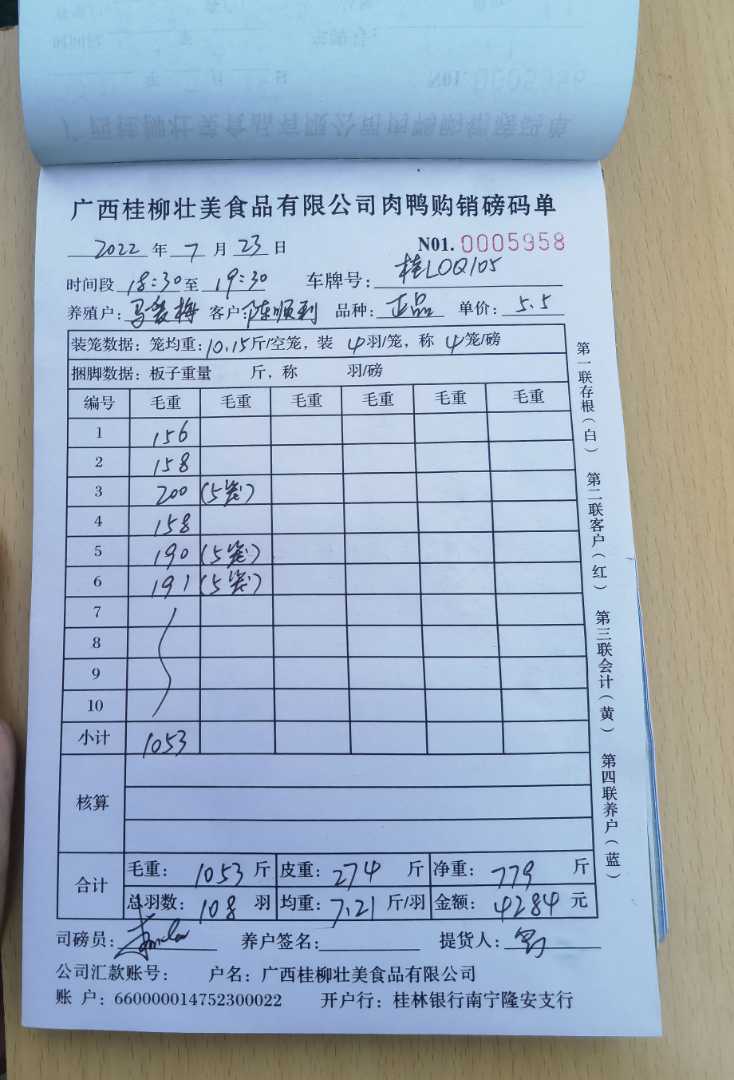 广西桂柳壮美食品有限公司肉鸭购销磅码单
2022 年 7 月 23 日 N01. 0005958
时间段 18:30 至 19:30 车牌号: 桂L0Q105
养殖户: 马爱梅 客户: 陈顺利 品种: 正品 单价: 5.5
装笼数据: 笼均重: 10.15 斤/空笼, 装 4 羽/笼, 称 4 笼/磅
捆脚数据: 板子重量 斤, 称 羽/磅
编号 毛重 毛重 毛重 毛重 毛重 毛重
1 156
2 158
3 200 (5笼)
4 158
5 190 (5笼)
6 191 (5笼)
7
8
9
10
小计 1053
核算
合计
毛重: 1053 斤 皮重: 274 斤 净重: 779 斤
总羽数: 108 羽 均重: 7.21 斤/羽 金额: 4284 元
司磅员: 养户签名: 提货人:
公司汇款账号: 户名: 广西桂柳壮美食品有限公司
账 户: 660000014752300022 开户行: 桂林银行南宁隆安支行
第一联存根(白) 第二联客户(红) 第三联会计(黄) 第四联养户(蓝)